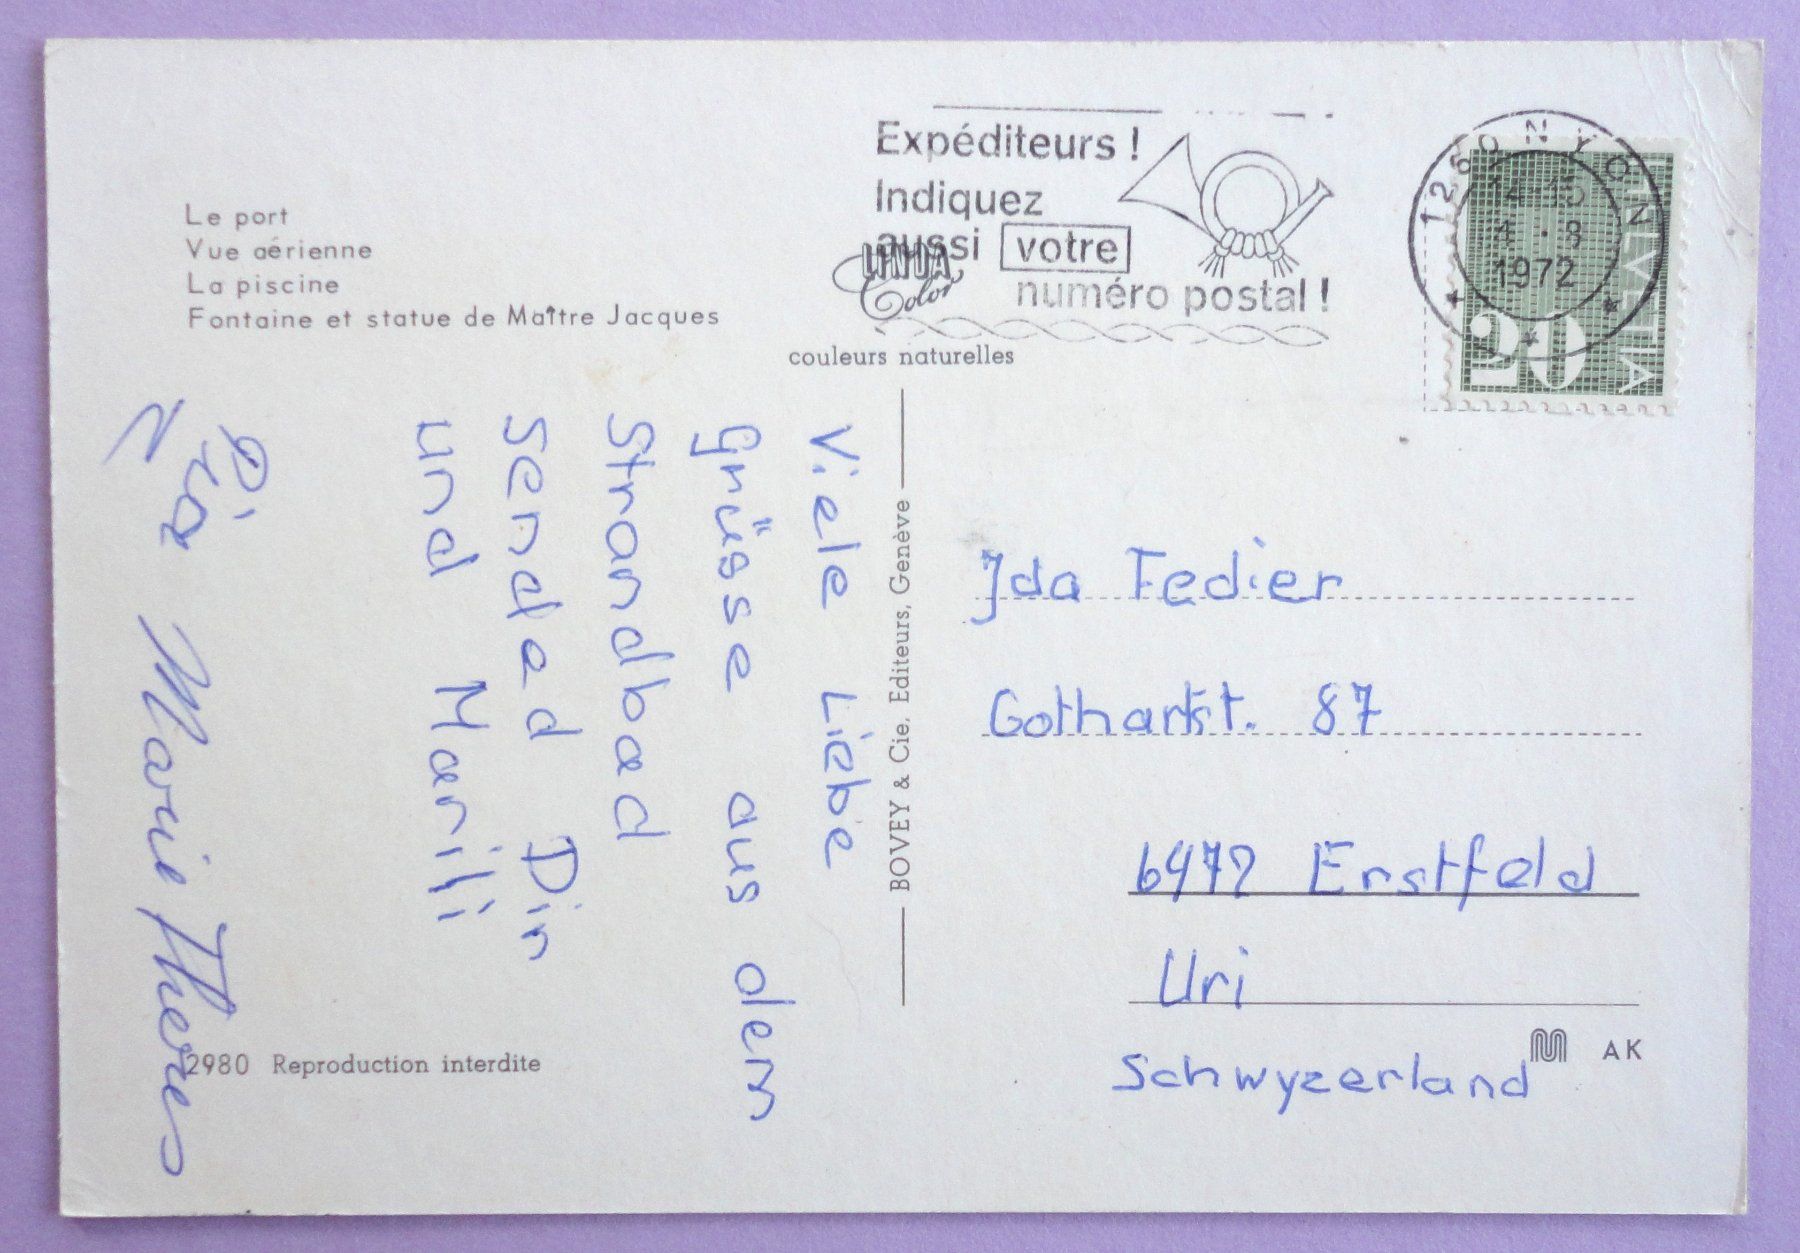 Le port
Vue aérienne
La piscine
Fontaine et statue de Maître Jacques
Expéditeurs !
Indiquez
aussi votre
numéro postal !
1260 NYON
14-15
1972
HELVETIA
20
Color
couleurs naturelles
BOVEY & Cie, Editeurs, Genève
Viele Liebe
grüsse aus dem
Strandbad
sended Din
und Marili
Pia Marie Theres
2980 Reproduction interdite
Jda Fedier
Gotharkst. 87
6472 Erstfeld
Uri
Schwyzerland
AK